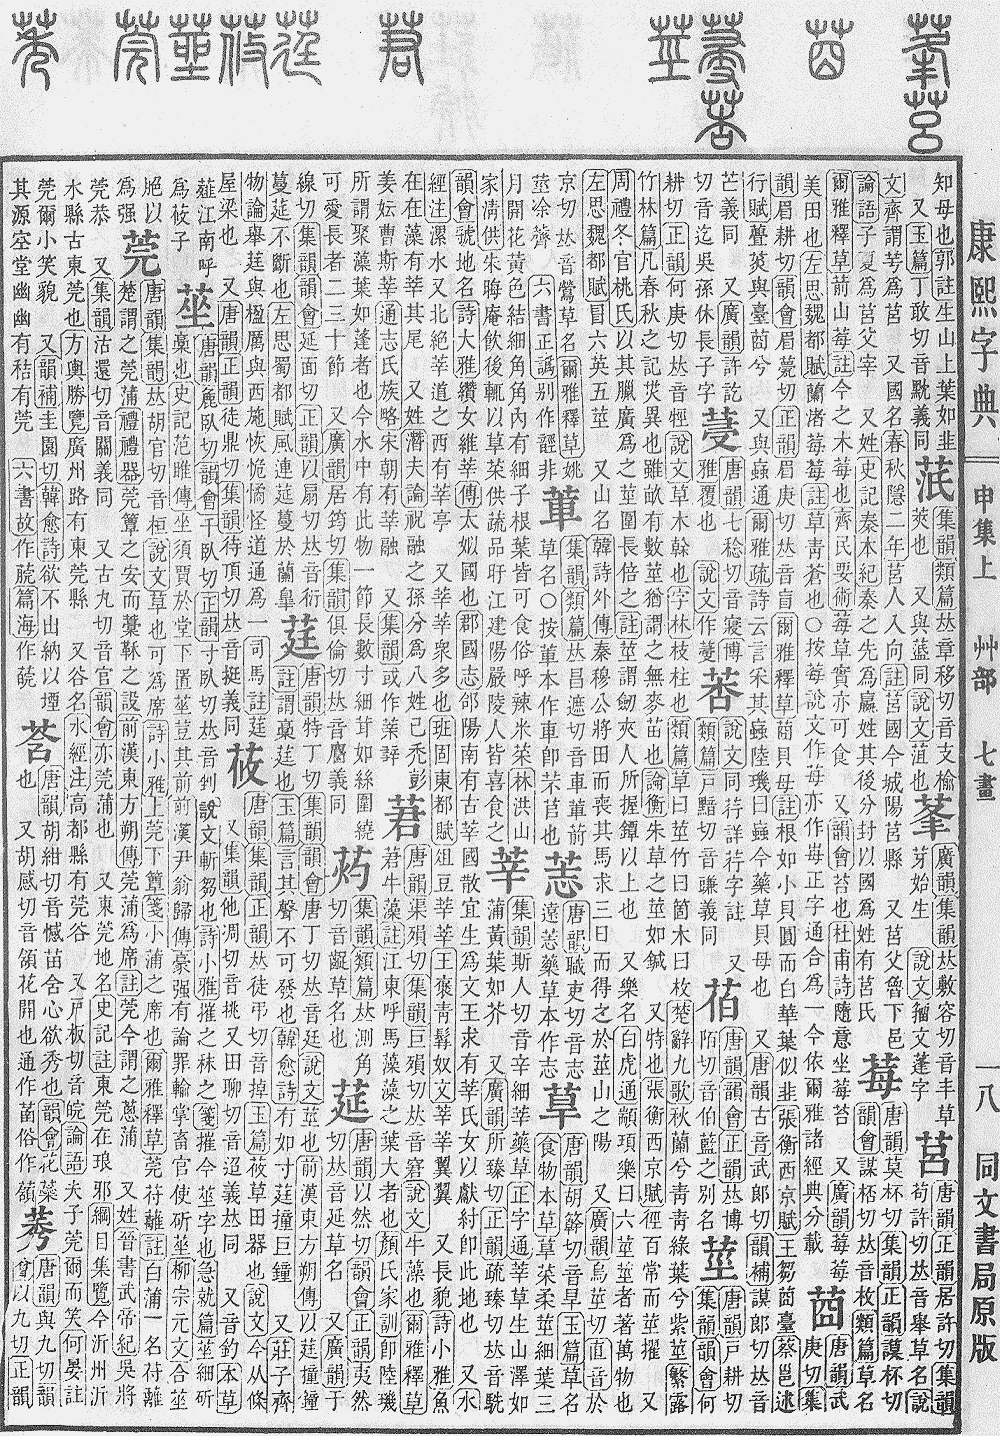 康熙字典 申集上 艸部 七畫 一八 同文書局原版
知母也郭註生山上葉如韭
又玉篇丁敢切音黕義同
茋 集韻類篇𠀤章移切音支楡
莢也 又與莐同說文菹也
莑 廣韻集韻𠀤敷容切音丰草
芽始生 說文籀文蓬字
莒 唐韻正韻居許切集韻
苟許切𠀤音舉草名說
文齊謂芌爲莒 又國名春秋隱二年莒人入向註莒國今城陽莒縣 又莒父魯下邑
論語子夏爲莒父宰 又姓史記秦本紀秦之先爲嬴姓其後分封以國爲姓有莒氏
莓 唐韻莫杯切集韻正韻謨杯切
韻會謀桮切𠀤音枚類篇草名
爾雅釋草葥山莓註今之木莓也齊民要術莓草實亦可食 又韻會苔也杜甫詩隨意坐莓苔 又廣韻莓莓
美田也左思魏都賦蘭渚莓莓註草靑蒼也○按莓說文作苺亦作 正字通合爲一今依爾雅諸經典分載
莔 唐韻武
庚切集
韻眉耕切韻會眉甍切正韻眉庚切𠀤音盲爾雅釋草莔貝母註根如小貝圓而白華葉似韭張衡西京賦王芻莔臺蔡邕述
行賦虋菼與臺莔兮 又與蝱通爾雅疏詩云言采其蝱陸璣曰蝱今藥草貝母也 又唐韻古音武郞切韻補謨郞切𠀤音
芒義同 又廣韻許訖
切音迄吳孫休長子字
唐韻七稔切音寑博
雅覆也 說文作
莕 說文同荇詳荇字註 又
類篇戸黯切音豏義同
唐韻韻會正韻𠀤博
陌切音伯藍之別名
莖 唐韻戸耕切
集韻韻會何
耕切正韻何庚切𠀤音牼說文草木榦也字林枝柱也類篇草曰莖竹曰箇木曰枚楚辭九歌秋蘭兮靑靑綠葉兮紫莖繁露
竹林篇凡春秋之記災異也雖畝有數莖猶謂之無麥苗也論衡朱草之莖如鍼 又特也張衡西京賦徑百常而莖擢 又
周禮冬官桃氏以其臘廣爲之莖圍長倍之註莖謂劒夾人所握鐔以上也 又樂名白虎通顓頊樂曰六莖莖者著萬物也
左思魏都賦冒六英五莖 又山名韓詩外傳秦穆公將田而喪其馬求三日而得之於莖山之陽 又廣韻烏莖切直音於
京切𠀤音鶯草名爾雅釋草姚
莖涂薺 六書正譌別作 非
莗 集韻類篇𠀤昌遮切音車莗前
草名○按莗本作車卽芣苢也
唐韻職吏切音志
遠 藥草本作志
䓍 唐韻胡笴切音旱玉篇草名
食物本草䓍菜柔莖細葉三
月開花黃色結細角角內有細子根葉皆可食俗呼辣米菜林洪山
家淸供朱晦庵飮後輒以䓍菜供蔬品盱江建陽嚴陵人皆喜食之
莘 集韻斯人切音辛細莘藥草正字通莘草生山澤如
蒲黃葉如芥 又廣韻所臻切正韻疏臻切𠀤音甡
韻會虢地名詩大雅纘女維莘傳太姒國也郡國志郃陽南有古莘國散宜生爲文王求有莘氏女以獻紂卽此地也 又水
經注漯水又北絕莘道之西有莘亭 又莘莘衆多也班固東都賦俎豆莘莘王褒靑髥奴文莘莘翼翼 又長貌詩小雅魚
在在藻有莘其尾 又姓潛夫論祝融之孫分爲八姓己禿彭
姜妘曹斯莘通志氏族略宋朝有莘融 又集韻或作
莙 唐韻渠殞切集韻巨殞切𠀤音窘說文牛藻也爾雅釋草
莙牛藻註江東呼馬藻藻之葉大者也顏氏家訓卽陸璣
所謂聚藻葉如蓬者也今水中有此物一節長數寸細茸如絲圍繞
可愛長者二三十節 又廣韻居筠切集韻俱倫切𠀤音麏義同
集韻類篇𠀤測角
切音齪草名也
莚 唐韻以然切韻會正韻夷然
切𠀤音延草名 又廣韻于
線切集韻韻會延面切正韻以扇切𠀤音衍
蔓莚不斷也左思蜀都賦風連莚蔓於蘭皐
莛 唐韻特丁切集韻韻會唐丁切𠀤音廷說文莖也前漢東方朔傳以莛撞鐘
註謂藁莛也玉篇言其聲不可發也韓愈詩有如寸莛撞巨鐘 又莊子齊
物論舉莛與楹厲與西施恢恑憰怪道通爲一司馬註莛
屋梁也 又唐韻正韻徒鼎切集韻待頂切𠀤音挺義同
莜 唐韻集韻正韻𠀤徒弔切音掉玉篇莜草田器也說文今从條
又集韻他凋切音挑又田聊切音迢義𠀤同 又音釣本草
薤江南呼
爲莜子
莝 唐韻麤臥切韻會千臥切正韻寸臥切𠀤音剉說文斬芻也詩小雅摧之秣之箋摧今莝字也急就篇莝細斫
藁也史記范雎傳坐須賈於堂下置莝豆其前前漢尹翁歸傳豪强有論罪輸掌畜官使斫莝柳宗元文合莝
絕以
爲强
莞 唐韻集韻𠀤胡官切音桓說文草也可爲席詩小雅上莞下簟箋小蒲之席也爾雅釋草莞苻蘺註白蒲一名苻蘺
楚謂之莞蒲禮禮器莞簟之安而藁鞂之設前漢東方朔傳莞蒲爲席註莞今謂之蔥蒲 又姓晉書武帝紀吳將
莞恭 又集韻沽還切音關義同 又古丸切音官韻會亦莞蒲也 又東莞地名史記註東莞在琅邪綱目集覽今沂州沂
水縣古東莞也方輿勝覽廣州路有東莞縣 又谷名水經注高都縣有莞谷 又戸板切音皖論語夫子莞爾而笑何晏註
莞爾小笑貌 又韻補圭園切韓愈詩欲不出納以堙
其源空堂幽幽有秸有莞 六書故作 篇海作
莟 唐韻胡紺切音憾苗含心欲秀也韻會花蘂也
又胡感切音頷花開也通作菡俗作
莠 唐韻與九切韻
會以九切正韻